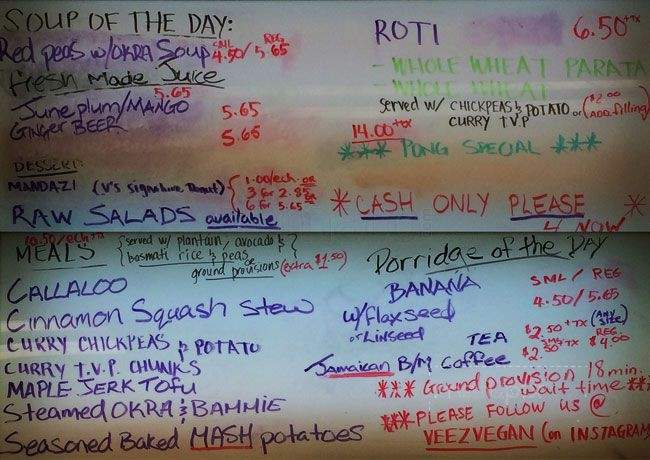 SOUP OF THE DAY:
Red peas w/OKRA Soup SML 4.50/ REG 5.65
Fresh Made Juice
5.65
June plum/MANGO 5.65
GINGER BEER 5.65
DESSERT
MANDAZI (V's signature Donut) { 1.00/ech. OR
3 for 2.85 OR
6 for 5.65
RAW SALADS available
ROTI 6.50+tx
- WHOLE WHEAT PARATA
- WHOLE WHEAT
served w/ CHICKPEAS & POTATO or ($2.00 ADD. filling)
CURRY T.V.P
14.00+tx
*** PONG SPECIAL ***
* CASH ONLY PLEASE *
4 NOW
10.50/ech+tx
MEALS { served w/ plantain, avocado &
basmati rice & peas or
ground provisions (extra $1.50)
CALLALOO
Cinnamon Squash Stew
CURRY CHICKPEAS & POTATO
CURRY T.V.P. CHUNKS
MAPLE JERK TOFU
Steamed OKRA & BAMMIE
Seasoned Baked MASH potatoes
Porridge of the DAY
BANANA SML / REG
w/flaxseed 4.50/5.65
or Linseed
TEA $2.50+TX (ANY SIZE)
Jamaican B/M Coffee SML $2.50 REG $4.00
*** Ground provision 18 min.
wait time ***
*** PLEASE FOLLOW US @
VEEZVEGAN (on INSTAGRAM